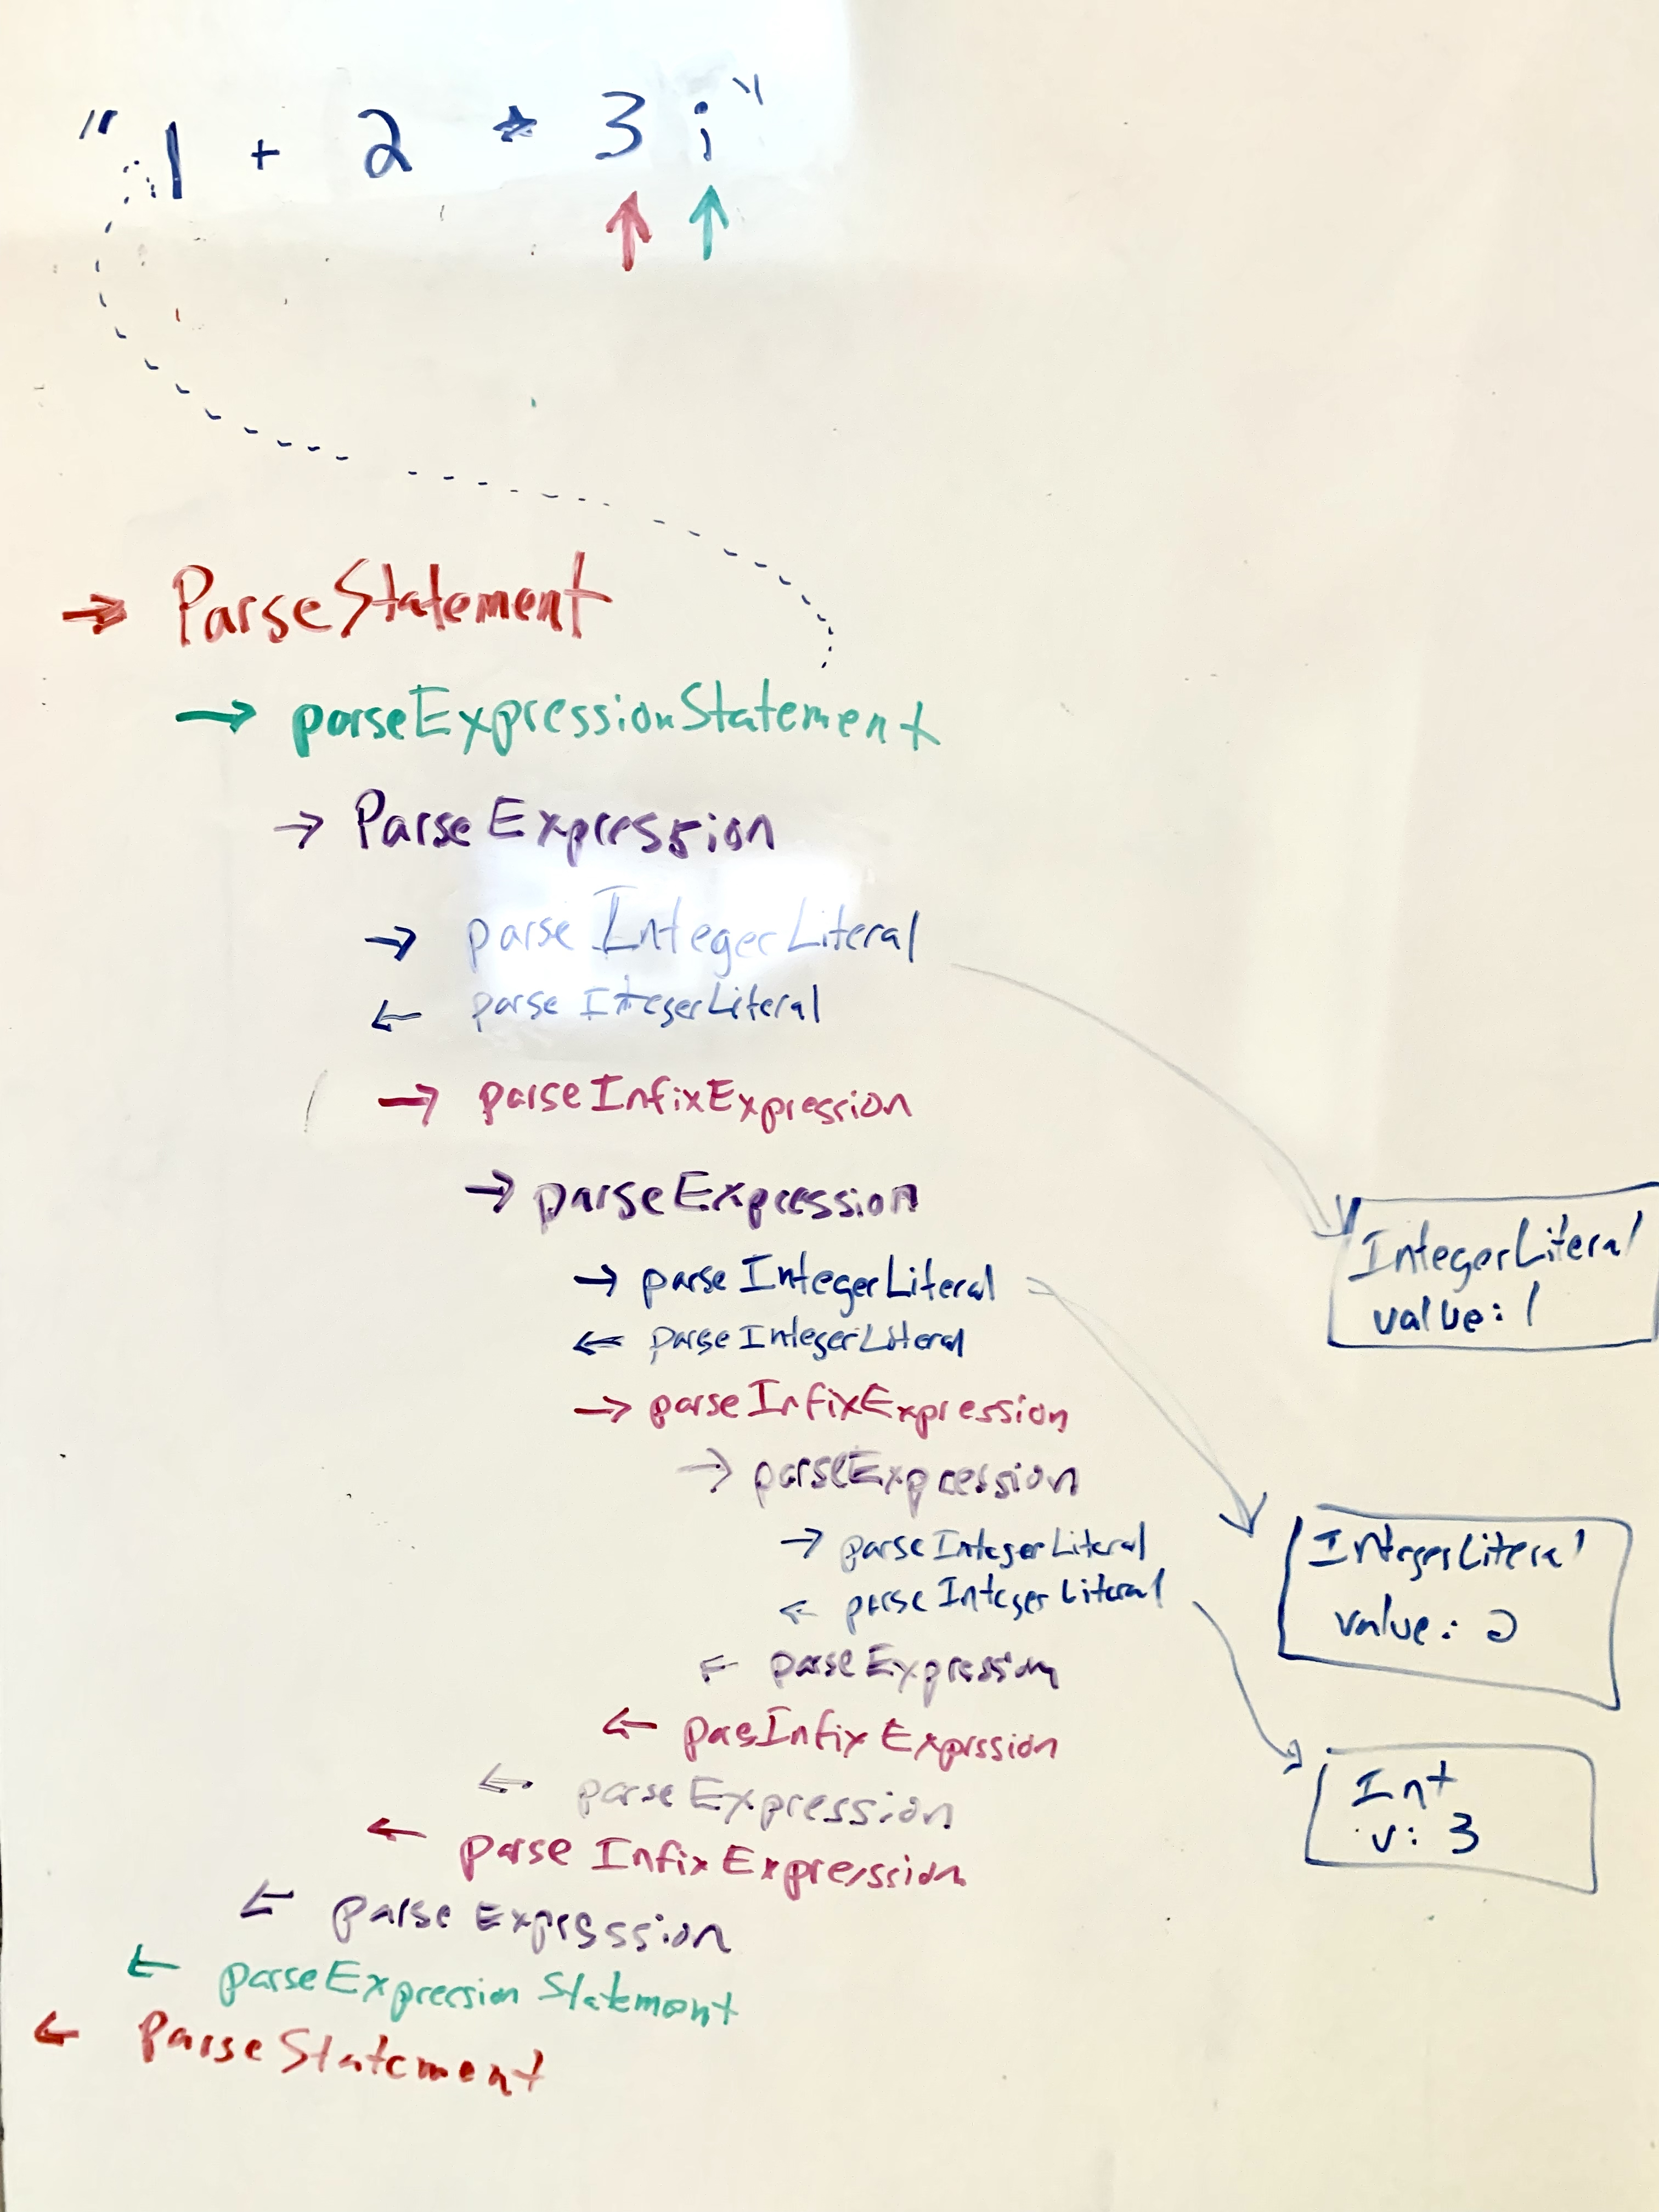 "1 + 2 * 3 ;"
→ ParseStatement
→ parseExpressionStatement
→ ParseExpression
→ parseIntegerLiteral
← parseIntegerLiteral
→ parseInfixExpression
→ parseExpression
→ parseIntegerLiteral
← parseIntegerLiteral
→ parseInfixExpression
→ parseExpression
→ parseIntegerLiteral
← parseIntegerLiteral
← parseExpression
← pasInfixExprssion
← parseExpression
← parseInfixExpression
← parseExpression
← parseExpression Statement
← ParseStatement
IntegerLiteral
value: 1
IntegerLiteral
value: 2
Int
v: 3